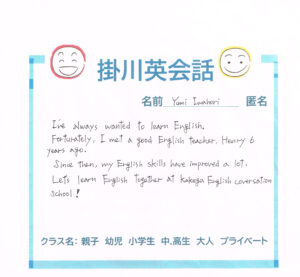 掛川英会話
名前 Yumi Iwahori 匿名
I've always wanted to learn English.
Fortunately, I met a good English teacher, Henry 6
years ago.
Since then, my English skills have improved a lot.
Let's learn English together at Kakega English coversation
school!
クラス名: 親子 幼児 小学生 中,高生 大人 プライベート